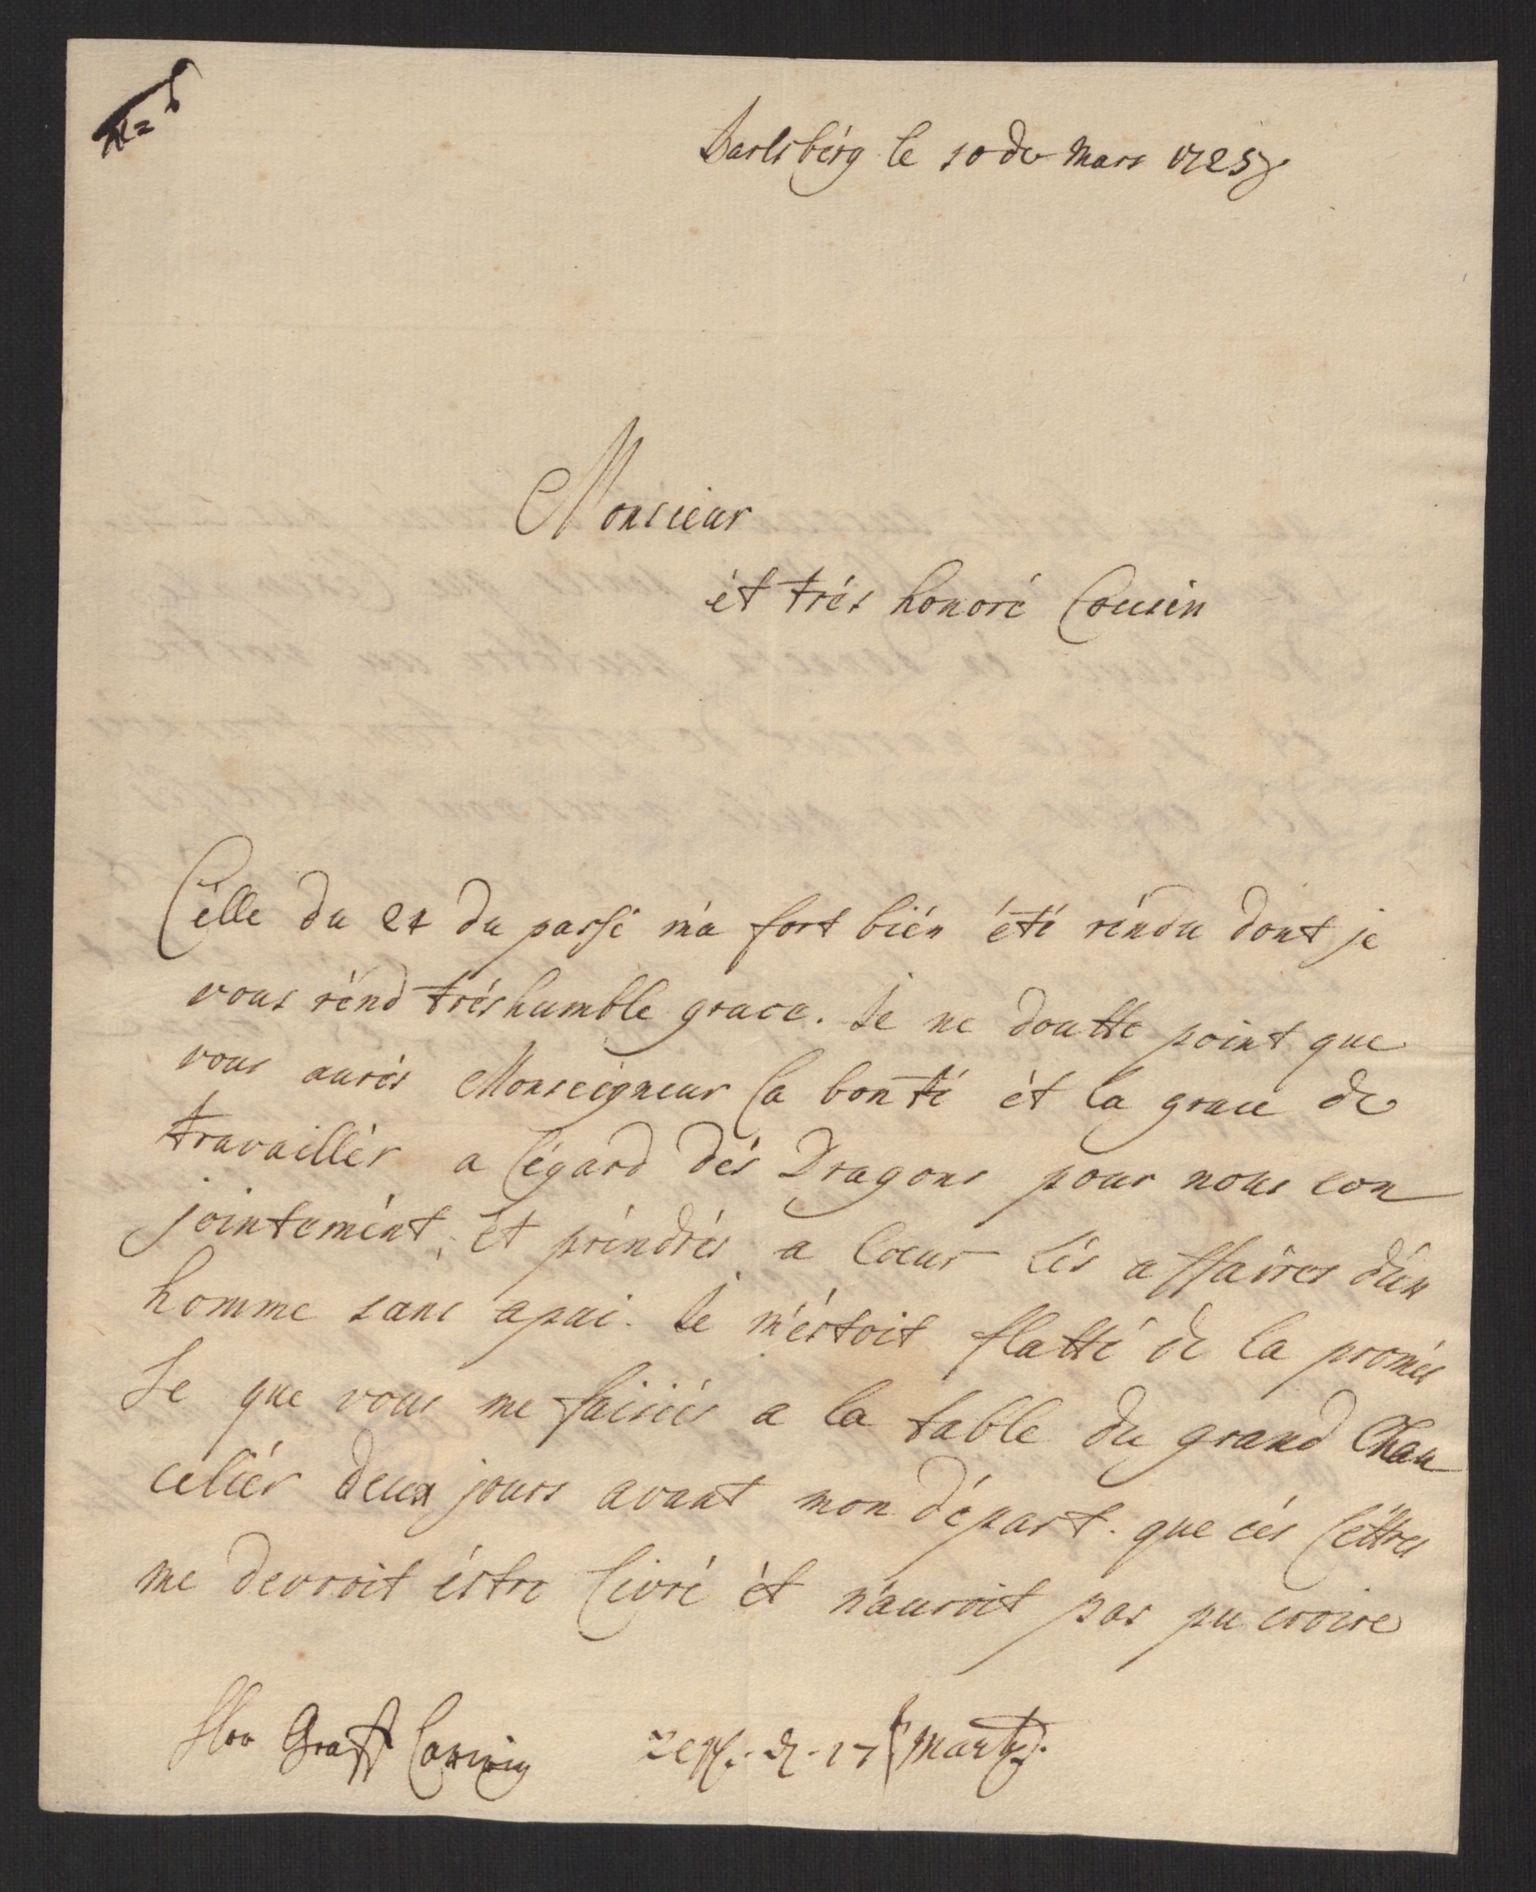 Jarlsbérg le 10 de Mars 1725
Monsieur
ét trés honoré Cousin
Célle du 21 du passé m'a fort bién été réndu dont je
vous rénd tréshumble grace. Je ne doutte point que
vous aurés Monseigneur la bonté ét la grace de
travaillér a légard dés Dragons pour nous con
jointemént, ét préndrés a Coeur lés affaires d'un
homme sans apui. Je m'éstoit flatté de la promés
se que vous me faisiés a la table du grand Chan
celiér deux jours avant mon départ. que cés léttres
me devroit éstre livré ét n'auroit pas pu croire
Graff Lauwig d. 17 Marty.